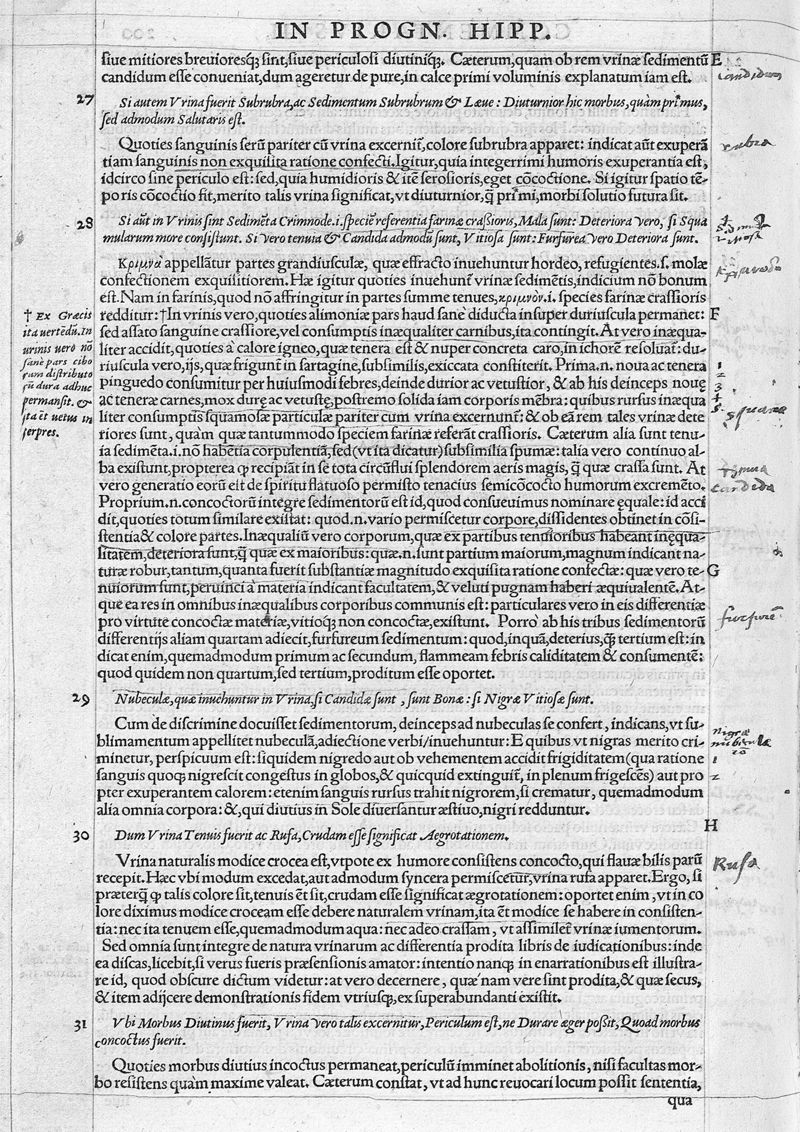 IN PROGN. HIPP.
siue mitiores breuioresq́; sint, siue periculosi diutiniq́;. Cæterum, quam ob rem vrinæ sedimentū E
candidum esse conueniat, dum ageretur de pure, in calce primi voluminis explanatum iam est.
candidum
27 Si autem Vrina fuerit Subrubra, ac Sedimentum Subrubrum & Læue: Diuturnior hic morbus, quàm primus,
sed admodum Salutaris est.
Quoties sanguinis serū pariter cū vrina excernit̃, colore subrubra apparet: indicat aūt exuperā
tiam sanguinis non exquisita ratione confecti. Igitur, quia integerrimi humoris exuperantia est,
idcirco sine periculo est: sed, quia humidioris & itē serosioris, eget cōcoctione. Si igitur spatio tē-
poris cōcoctio fit, merito talis vrina significat, vt diuturnior, q̃ primi, morbi solutio futura sit.
rubra
28 Si aūt in Vrinis sint Sedimēta Crimnode .i. speciē referentia farinæ craßioris, Mala sunt: Deteriora vero, si Squa
mularum more consistunt. Si vero tenuia & Candida admodū sunt, Vitiosa sunt: Furfurea vero Deteriora sunt.
Κριμνὰ appellātur partes grandiusculæ, quæ effracto inuehuntur hordeo, refugientes .s. molæ
confectionem exquisitiorem. Hæ igitur quoties inuehunt̃ vrinæ sedimētis, indicium nō bonum
est. Nam in farinis, quod nō affringitur in partes summe tenues, κριμνὸν .i. species farinæ crassioris
redditur: † In vrinis vero, quoties alimoniæ pars haud sane dīducta insuper duriuscula permanet: F
sed assato sanguine crassiore, vel consumptis inæqualiter carnibus, ita contingit. At vero inæqua-
liter accidit, quoties à calore igneo, quæ tenera est & nuper concreta caro, in ichorē resoluat̃: du-
riuscula vero, ijs, quæ frigunt in sartagine, subsimilis, exiccata constiterit. Prima .n. noua ac tenera
pinguedo consumitur per huiusmodi febres, deinde durior ac vetustior, & ab his deinceps nouę
ac teneræ carnes, mox durę ac vetustę, postremo solida iam corporis mēbra: quibus rursus inæqua
liter consumptis squamosæ particulæ pariter cum vrina excernunt̃: & ob eā rem tales vrinæ dete
riores sunt, quàm quæ tantummodo speciem farinæ referāt crassioris. Cæterum alia sunt tenu-
ia sedimēta .i. nō habētia corpulentiā, sed (vt ita dicatur) subsimilia spumæ: talia vero continuo al-
ba existunt, propterea q̃ recipiāt in se tota circūflui splendorem aeris magis, q̃ quæ crassa sunt. At
vero generatio eorū est de spiritu flatuoso permisto tenacius semicōcocto humorum excremēto.
Proprium .n. concoctorū integre sedimentorū est id, quod consueuimus nominare ęquale: id acci
dit, quoties totum similare existat: quod .n. vario permiscetur corpore, dissidentes obtinet in cōsi-
stentia & colore partes. Inæqualiū vero corporum, quæ ex partibus tenuioribus habeant inęqua-
litatem, deteriora sunt, q̃ quæ ex maioribus: quæ .n. sunt partium maiorum, magnum indicant na-
turæ robur, tantum, quanta fuerit substantiæ magnitudo exquisita ratione confectæ: quæ vero te- G
nuiorum sunt, peruinci à materia indicant facultatem, & veluti pugnam haberi æquiualentē. At-
que ea res in omnibus inæqualibus corporibus communis est: particulares vero in eis differentiæ
pro virtute concoctæ materiæ, vitioq́; non concoctæ, existunt. Porro ab his tribus sedimentorū
differentijs aliam quartam adiecit, furfureum sedimentum: quod, inquā, deterius, q̃ tertium est: in
dicat enim, quemadmodum primum ac secundum, flammeam febris caliditatem & consumentē:
quod quidem non quartum, sed tertium, proditum esse oportet.
† Ex Græcis
ita uertēdū. in
urinis uero nō
sane pars cibo
rum distributo
rū dura adhuc
permansit. &
ita ēt uetus in
terpres.
squamæ
furfure
29 Nubeculæ, quæ inuehuntur in Vrina, si Candidæ sunt, sunt Bonæ: si Nigræ Vitiosæ sunt.
Cum de discrimine docuisset sedimentorum, deinceps ad nubeculas se confert, indicans, vt su-
blimamentum appellitet nubeculā, adiectione verbi / inuehuntur: E quibus vt nigras merito cri-
minetur, perspicuum est: siquidem nigredo aut ob vehementem accidit frigiditatem (qua ratione
sanguis quoq; nigrescit congestus in globos, & quicquid extinguit̃, in plenum frigescēs) aut pro
pter exuperantem calorem: etenim sanguis rursus trahit nigrorem, si crematur, quemadmodum
alia omnia corpora: &, qui diutius in Sole diuersantur æstiuo, nigri redduntur.
nigræ
nubeculæ
H
30 Dum Vrina Tenuis fuerit ac Rufa, Crudam esse significat Aegrotationem.
Vrina naturalis modice crocea est, vtpote ex humore consistens concocto, qui flauæ bilis parū
recepit. Hæc vbi modum excedat, aut admodum syncera permiscetur, vrina rufa apparet. Ergo, si
præterq̃ q̃ talis colore sit, tenuis ēt sit, crudam esse significat ægrotationem: oportet enim, vt in co
lore diximus modice croceam esse debere naturalem vrinam, ita ēt modice se habere in consisten-
tia: nec ita tenuem esse, quemadmodum aqua: nec adeo crassam, vt assimilet̃ vrinæ iumentorum.
Sed omnia sunt integre de natura vrinarum ac differentia prodita libris de iudicationibus: inde
ea discas, licebit, si verus fueris præsensionis amator: intentio nanq; in enarrationibus est illustra-
re id, quod obscure dictum videtur: at vero decernere, quæ nam vere sint prodita, & quæ secus,
& item adijcere demonstrationis fidem vtriusq;, ex superabundanti existit.
Rufa
31 Vbi Morbus Diutinus fuerit, Vrina vero talis excernitur, Periculum est, ne Durare æger poßit, Quoad morbus
concoctus fuerit.
Quoties morbus diutius incoctus permaneat, periculū imminet abolitionis, nisi facultas mor-
bo resistens quàm maxime valeat. Cæterum constat, vt ad hunc reuocari locum possit sententia,
qua